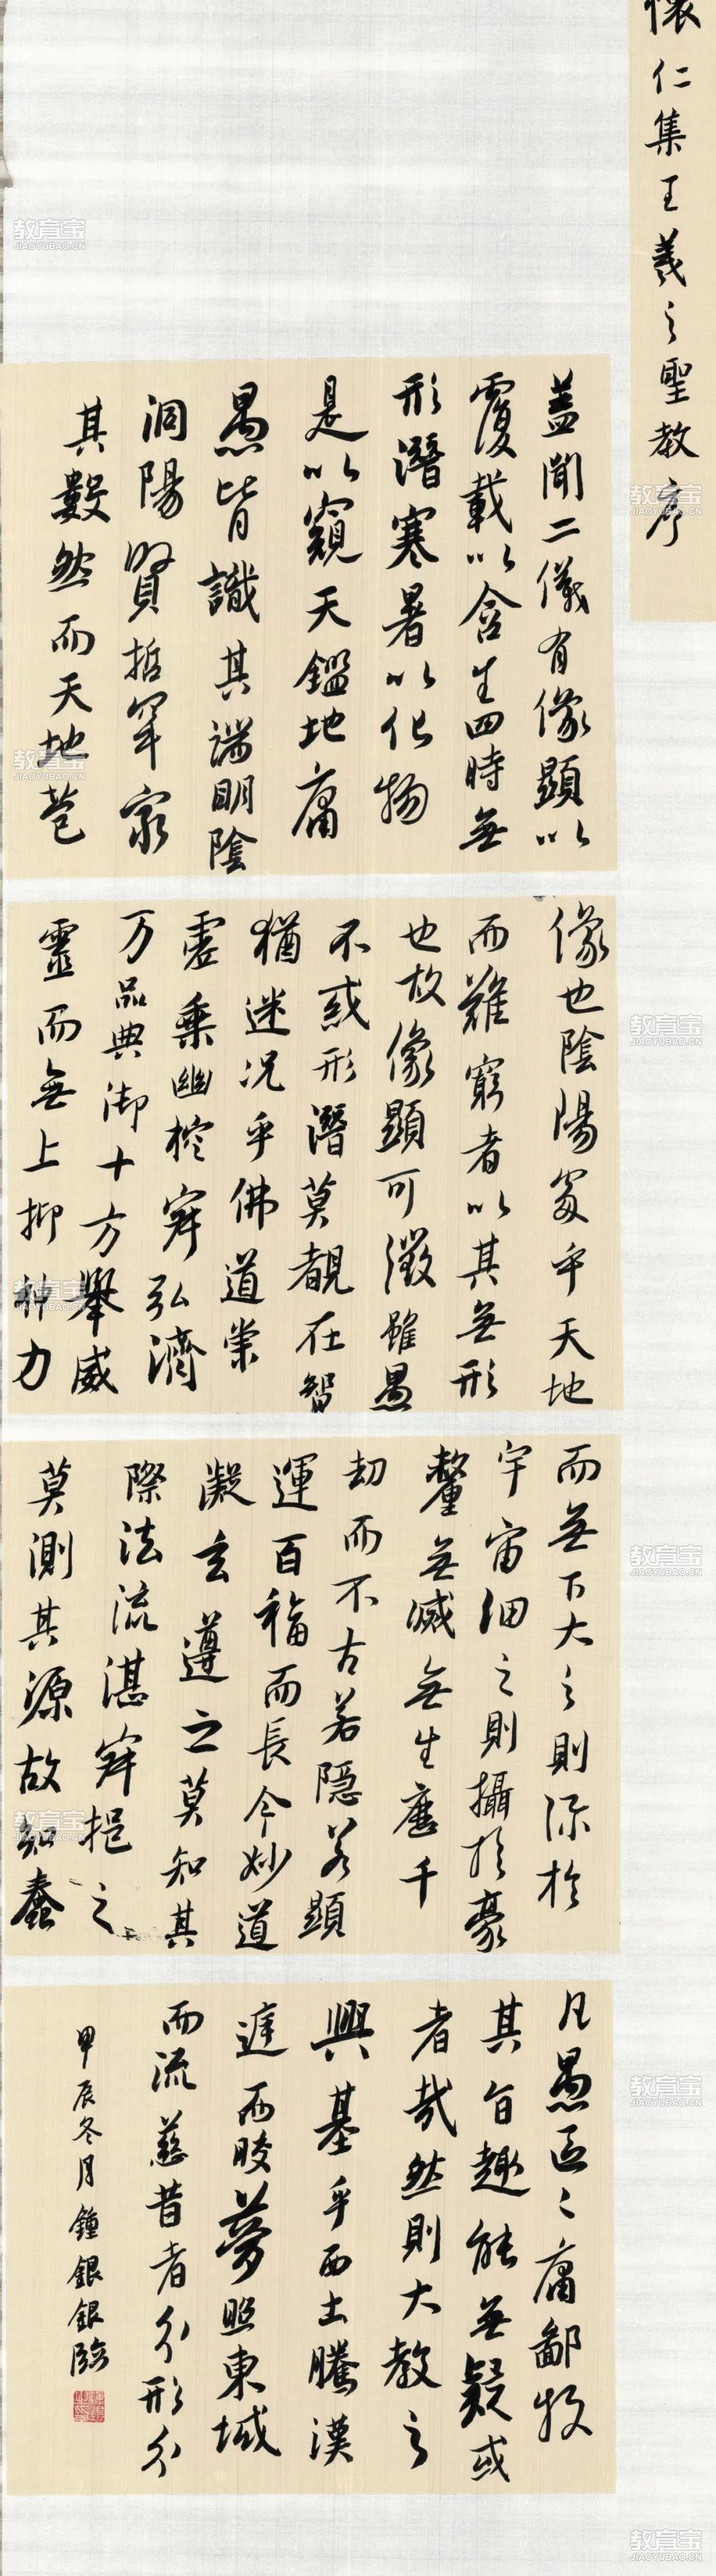 懷仁集王羲之聖教序
蓋聞二儀有像顯以
覆載以含生四時無
形潛寒暑以化物
是以窺天鑑地庸
愚皆識其端明陰
洞陽賢哲罕窮
其數然而天地苞
像也陰陽處乎天地
而難窮者以其無形
也故像顯可徵雖愚
不惑形潛莫覩在智
猶迷況乎佛道崇
虛乘幽控寂弘濟
万品典御十方舉威
靈而無上抑神力
而無下大之則弥於
宇宙細之則攝於豪
釐無滅無生歷千
劫而不古若隱若顯
運百福而長今妙道
凝玄遵之莫知其
際法流湛寂挹之
莫測其源故知蠢
凡愚區〻庸鄙投
其旨趣能無疑或
者哉然則大教之
興基乎西土騰漢
庭而皎夢照東域
而流慈昔者分形分
甲辰冬月鍾銀銀臨
教育宝
JIAOYUBAO.CN
教育宝
JIAOYUBAO.CN
教育宝
JIAOYUBAO.CN
教育宝
JIAOYUBAO.CN
教育宝
JIAOYUBAO.CN
教育宝
JIAOYUBAO.CN
教育宝
JIAOYUBAO.CN
教育宝
JIAOYUBAO.CN
教育宝
JIAOYUBAO.CN